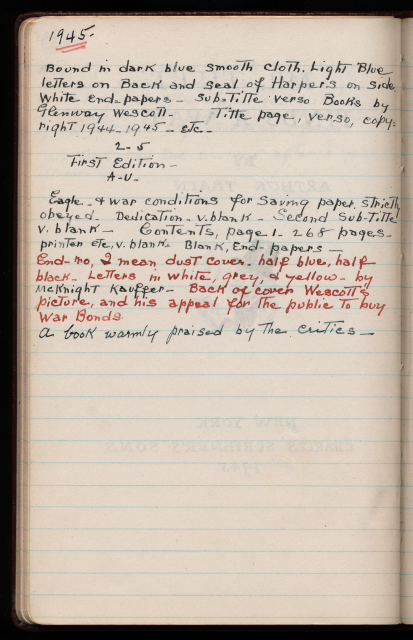 1945.
Bound in dark blue smooth cloth. Light Blue
letters on Back and seal of Harpers on side
White End-papers - Sub-Title verso Books by
Glenway Wescott - Title page, verso, copy=
right 1944-1945 - etc -
2-5
First Edition -
A-U -
Eagle - & war conditions for saving paper, strictly
obeyed. Dedication - v. blank - Second Sub-Title
v. blank - Contents, page 1 - 268 pages -
printer etc, v. blank - Blank, End-papers -
End-no, I mean dust cover - half blue, half
black - Letters in white, grey, & yellow - by
McKnight Kauffer - Back of cover Wescott's
picture, and his appeal for the public to buy
War Bonds.
A book warmly praised by the critics -
ARTHUR TRAIN
NEW YORK
CHARLES SCRIBNER'S SONS
1945